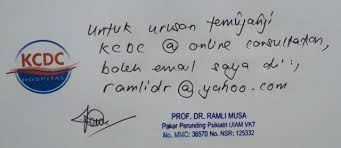 Untuk urusan temujanji
KCDC @ online consultation,
boleh email saya di :,
ramlidr @ yahoo.com
KCDC
HOSPITAL
PROF. DR. RAMLI MUSA
Pakar Perunding Psikiatri UIAM VK7
No. MMC: 36570 No. NSR: 125332